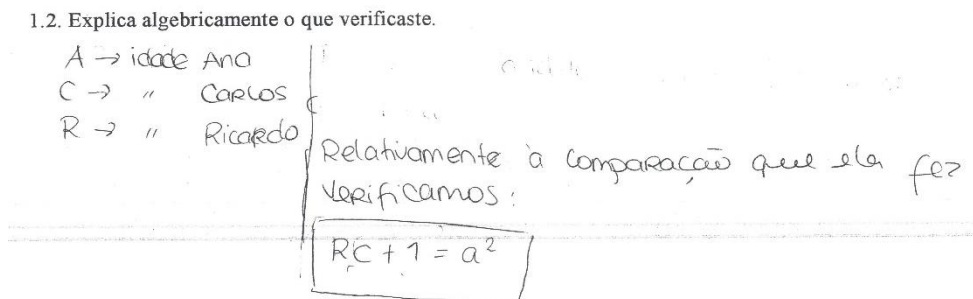 1.2. Explica algebricamente o que verificaste.
A → idade Ana
C → " Carlos
R → " Ricardo
Relativamente à comparação que ela fez
verificamos:
RC + 1 = a²